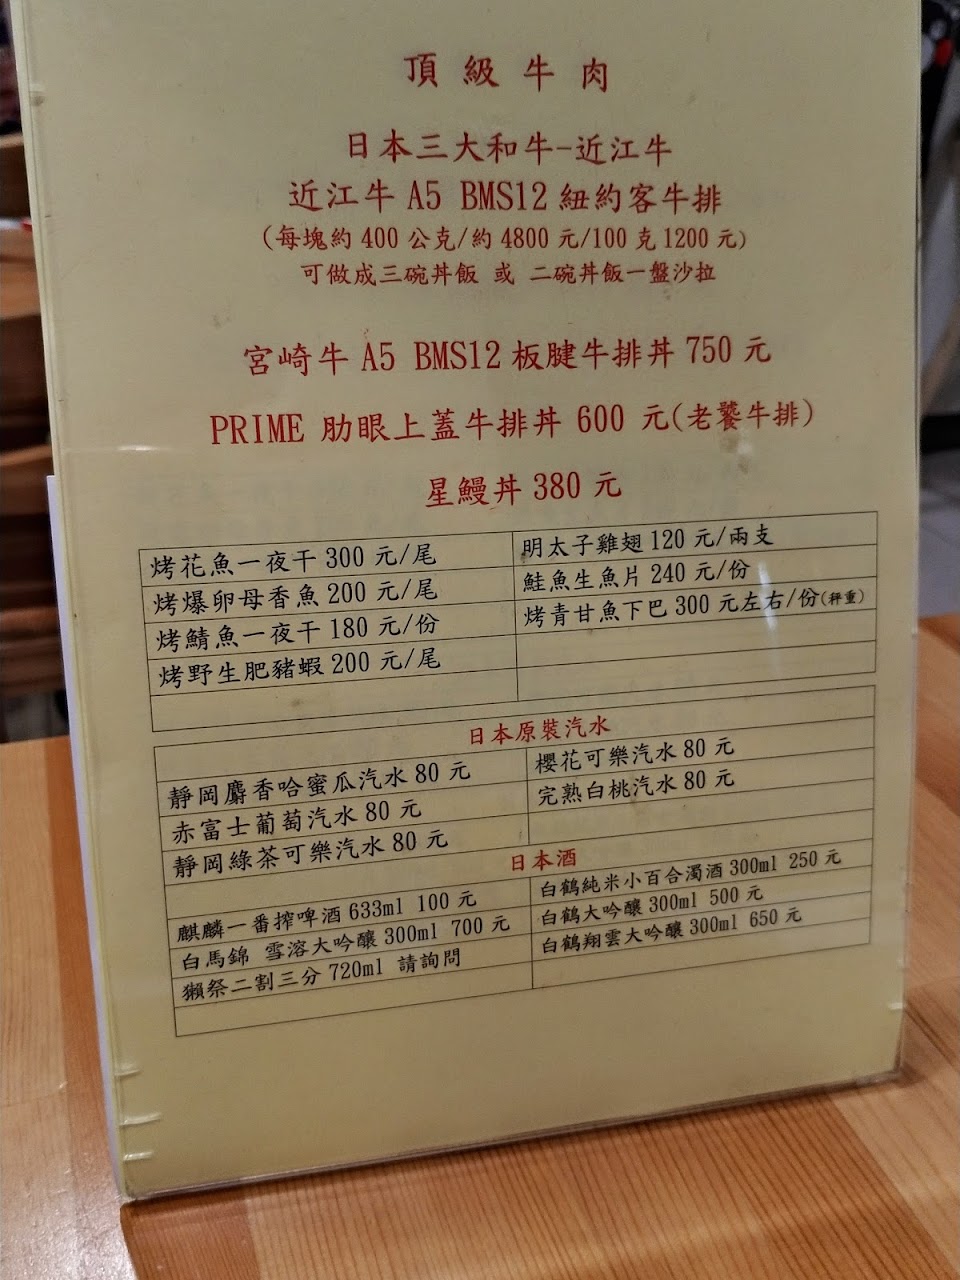 頂級牛肉
日本三大和牛-近江牛
近江牛 A5 BMS12 紐約客牛排
(每塊約 400 公克/約 4800 元/100 克 1200 元)
可做成三碗丼飯 或 二碗丼飯一盤沙拉
宮崎牛 A5 BMS12 板腱牛排丼 750 元
PRIME 肋眼上蓋牛排丼 600 元(老饕牛排)
星鰻丼 380 元
烤花魚一夜干 300 元/尾
明太子雞翅 120 元/兩支
烤爆卵母香魚 200 元/尾
鮭魚生魚片 240 元/份
烤鯖魚一夜干 180 元/份
烤青甘魚下巴 300 元左右/份(秤重)
烤野生肥豬蝦 200 元/尾
日本原裝汽水
靜岡麝香哈蜜瓜汽水 80 元
櫻花可樂汽水 80 元
赤富士葡萄汽水 80 元
完熟白桃汽水 80 元
靜岡綠茶可樂汽水 80 元
日本酒
麒麟一番搾啤酒 633ml 100 元
白鶴純米小百合濁酒 300ml 250 元
白馬錦 雪溶大吟釀 300ml 700 元
白鶴大吟釀 300ml 500 元
獺祭二割三分 720ml 請詢問
白鶴翔雲大吟釀 300ml 650 元